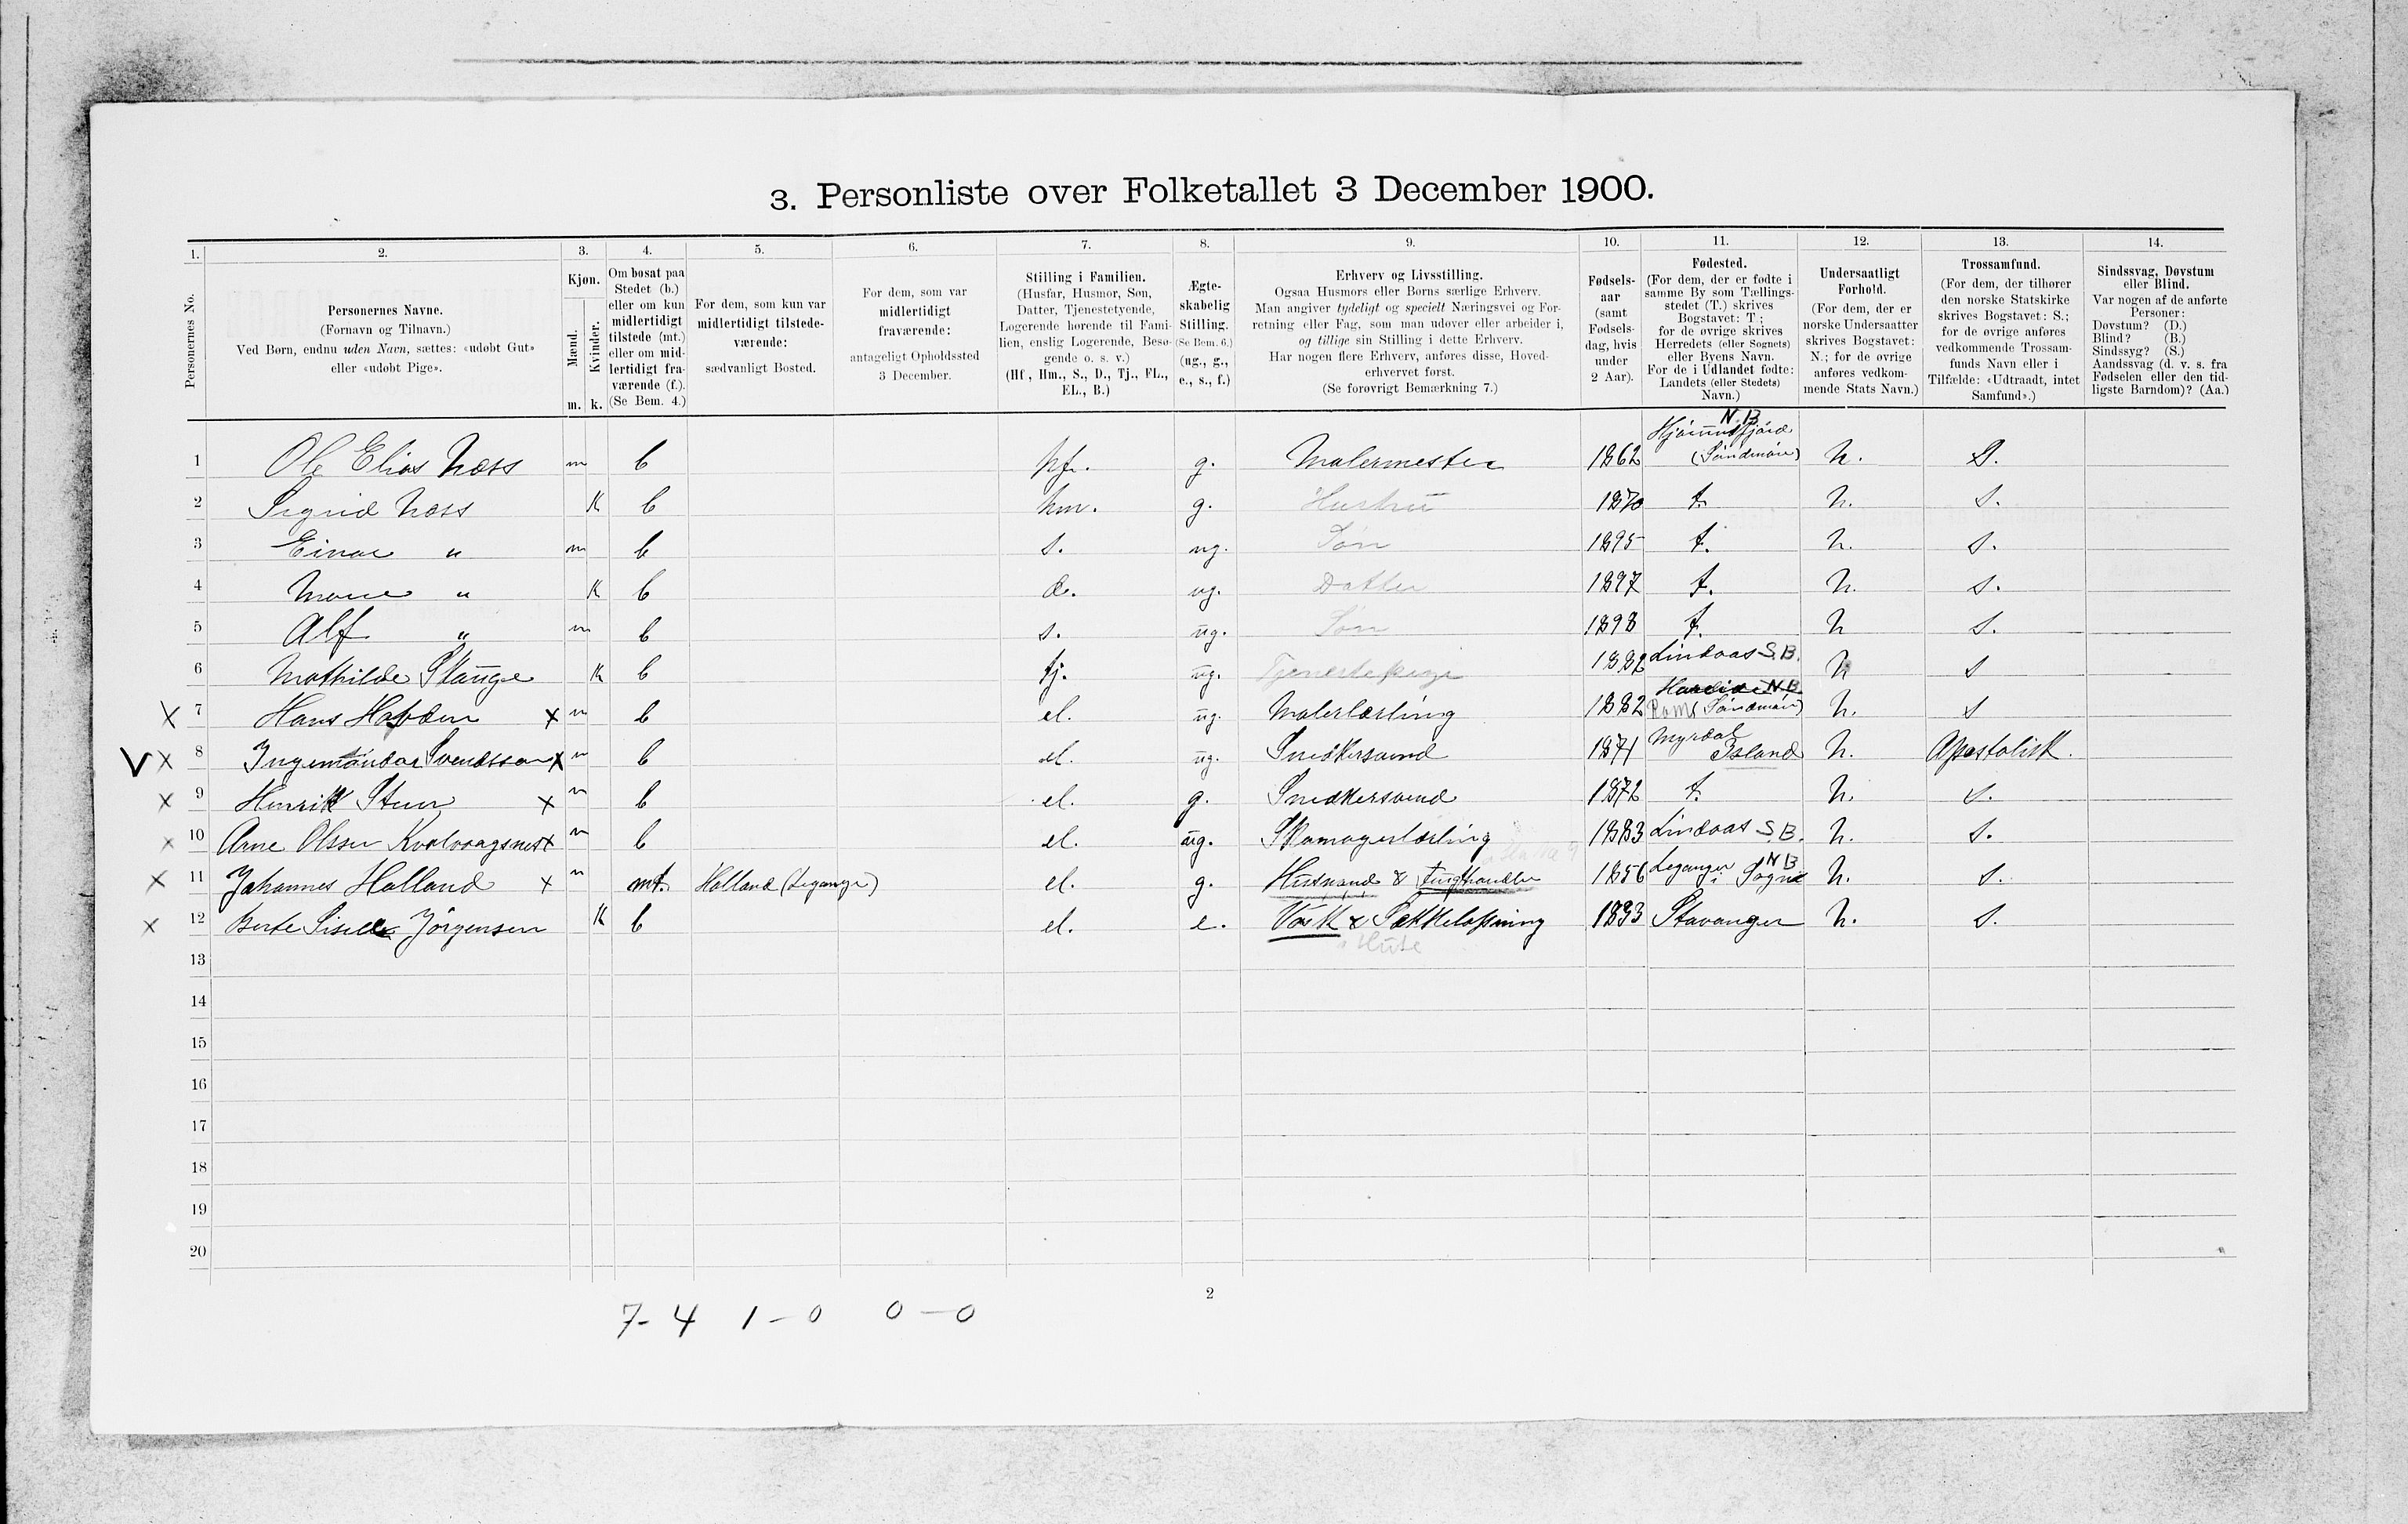 3. Personliste over Folketallet 3 December 1900.
1. 2. 3. 4. 5. 6. 7. 8. 9. 10. 11. 12. 13. 14.
Personernes No.
Personernes Navne.
(Fornavn og Tilnavn.)
Ved Børn, endnu uden Navn, sættes: «udøbt Gut»
eller «udøbt Pige».
Kjøn.
Mænd.
Kvinder.
m. k.
Om bosat paa
Stedet (b.)
eller om kun
midlertidigt
tilstede (mt.)
eller om mid-
lertidigt fra-
værende (f.).
(Se Bem. 4.)
For dem, som kun var
midlertidigt tilstede-
værende:
sædvanligt Bosted.
For dem, som var
midlertidigt
fraværende:
antageligt Opholdssted
3 December.
Stilling i Familien.
(Husfar, Husmor, Søn,
Datter, Tjenestetyende,
Logerende hørende til Fami-
lien, enslig Logerende, Besø-
gende o. s. v.)
(Hf., Hm., S., D., Tj., FL.,
EL., B.)
Ægte-
skabelig
Stilling.
(Se Bem. 6.)
(ug., g.,
e., s., f.)
Erhverv og Livsstilling.
Ogsaa Husmors eller Børns særlige Erhverv.
Man angiver tydeligt og specielt Næringsvei og For-
retning eller Fag, som man udøver eller arbeider i,
og tillige sin Stilling i dette Erhverv.
Har nogen flere Erhverv, anføres disse, Hoved-
erhvervet først.
(Se forøvrigt Bemærkning 7.)
Fødsels-
aar
(samt
Fødsels-
dag, hvis
under
2 Aar).
Fødested.
(For dem, der er fødte i
samme By som Tællings-
stedet (T.) skrives
Bogstavet: T;
for de øvrige skrives
Herredets (eller Sognets)
eller Byens Navn.
For de i Udlandet fødte:
Landets (eller Stedets)
Navn.)
Undersaatligt
Forhold.
(For dem, der er
norske Undersaatter
skrives Bogstavet:
N.; for de øvrige
anføres vedkom-
mende Stats Navn.)
Trossamfund.
(For dem, der tilhører
den norske Statskirke
skrives Bogstavet: S.;
for de øvrige anføres
vedkommende Trossam-
funds Navn eller i
Tilfælde: «Udtraadt, intet
Samfund».)
Sindssvag, Døvstum
eller Blind.
Var nogen af de anførte
Personer:
Døvstum? (D.)
Blind? (B.)
Sindssyg? (S.)
Aandssvag (d. v. s. fra
Fødselen eller den tid-
ligste Barndom)? (Aa.)
N.B
1 Ole Elias Næss m b hf. g. Malermester 1862 (Søndmør) n. S.
2 Sigrid Næss K b hm. g. Hustru 1870 t. n. S.
3 Einar " m b s. ug. Søn 1895 t. n. S.
4 " K b d. ug. Datter 1897 t. n. S.
5 Alf " m b s. ug. Søn 1898 t. n S.
6 Mathilde Stange K b tj. ug. Tjenestepige 1882 Lindaas S.B. n S
X 7 Hans X m b el. ug. Malerlærling 1882 N.B. Søndmør) n. S
V X 8 Svendsson X m b el. ug. Snedkersvend 1871 Myrdal Island n. Apostolisk.
X 9 Henrik Steen X m b el. g. Snedkersvend 1872 t. n. S.
X 10 Arne Olsen Kvalvaagsnes X m b el. ug. Skomagerlærling 1883 Lindaas S.B. n. S.
X 11 Johannes Holland X m mt. Holland (Leganger) el. g. Husmand & 1856 Leganger i Sogn N B n. S.
X 12 Berte Jörgensen K b el. e. Vask & 1833 Stavanger n. S.
13
14
15
16
17
18
19
20
2
7-4 1-0 0-0